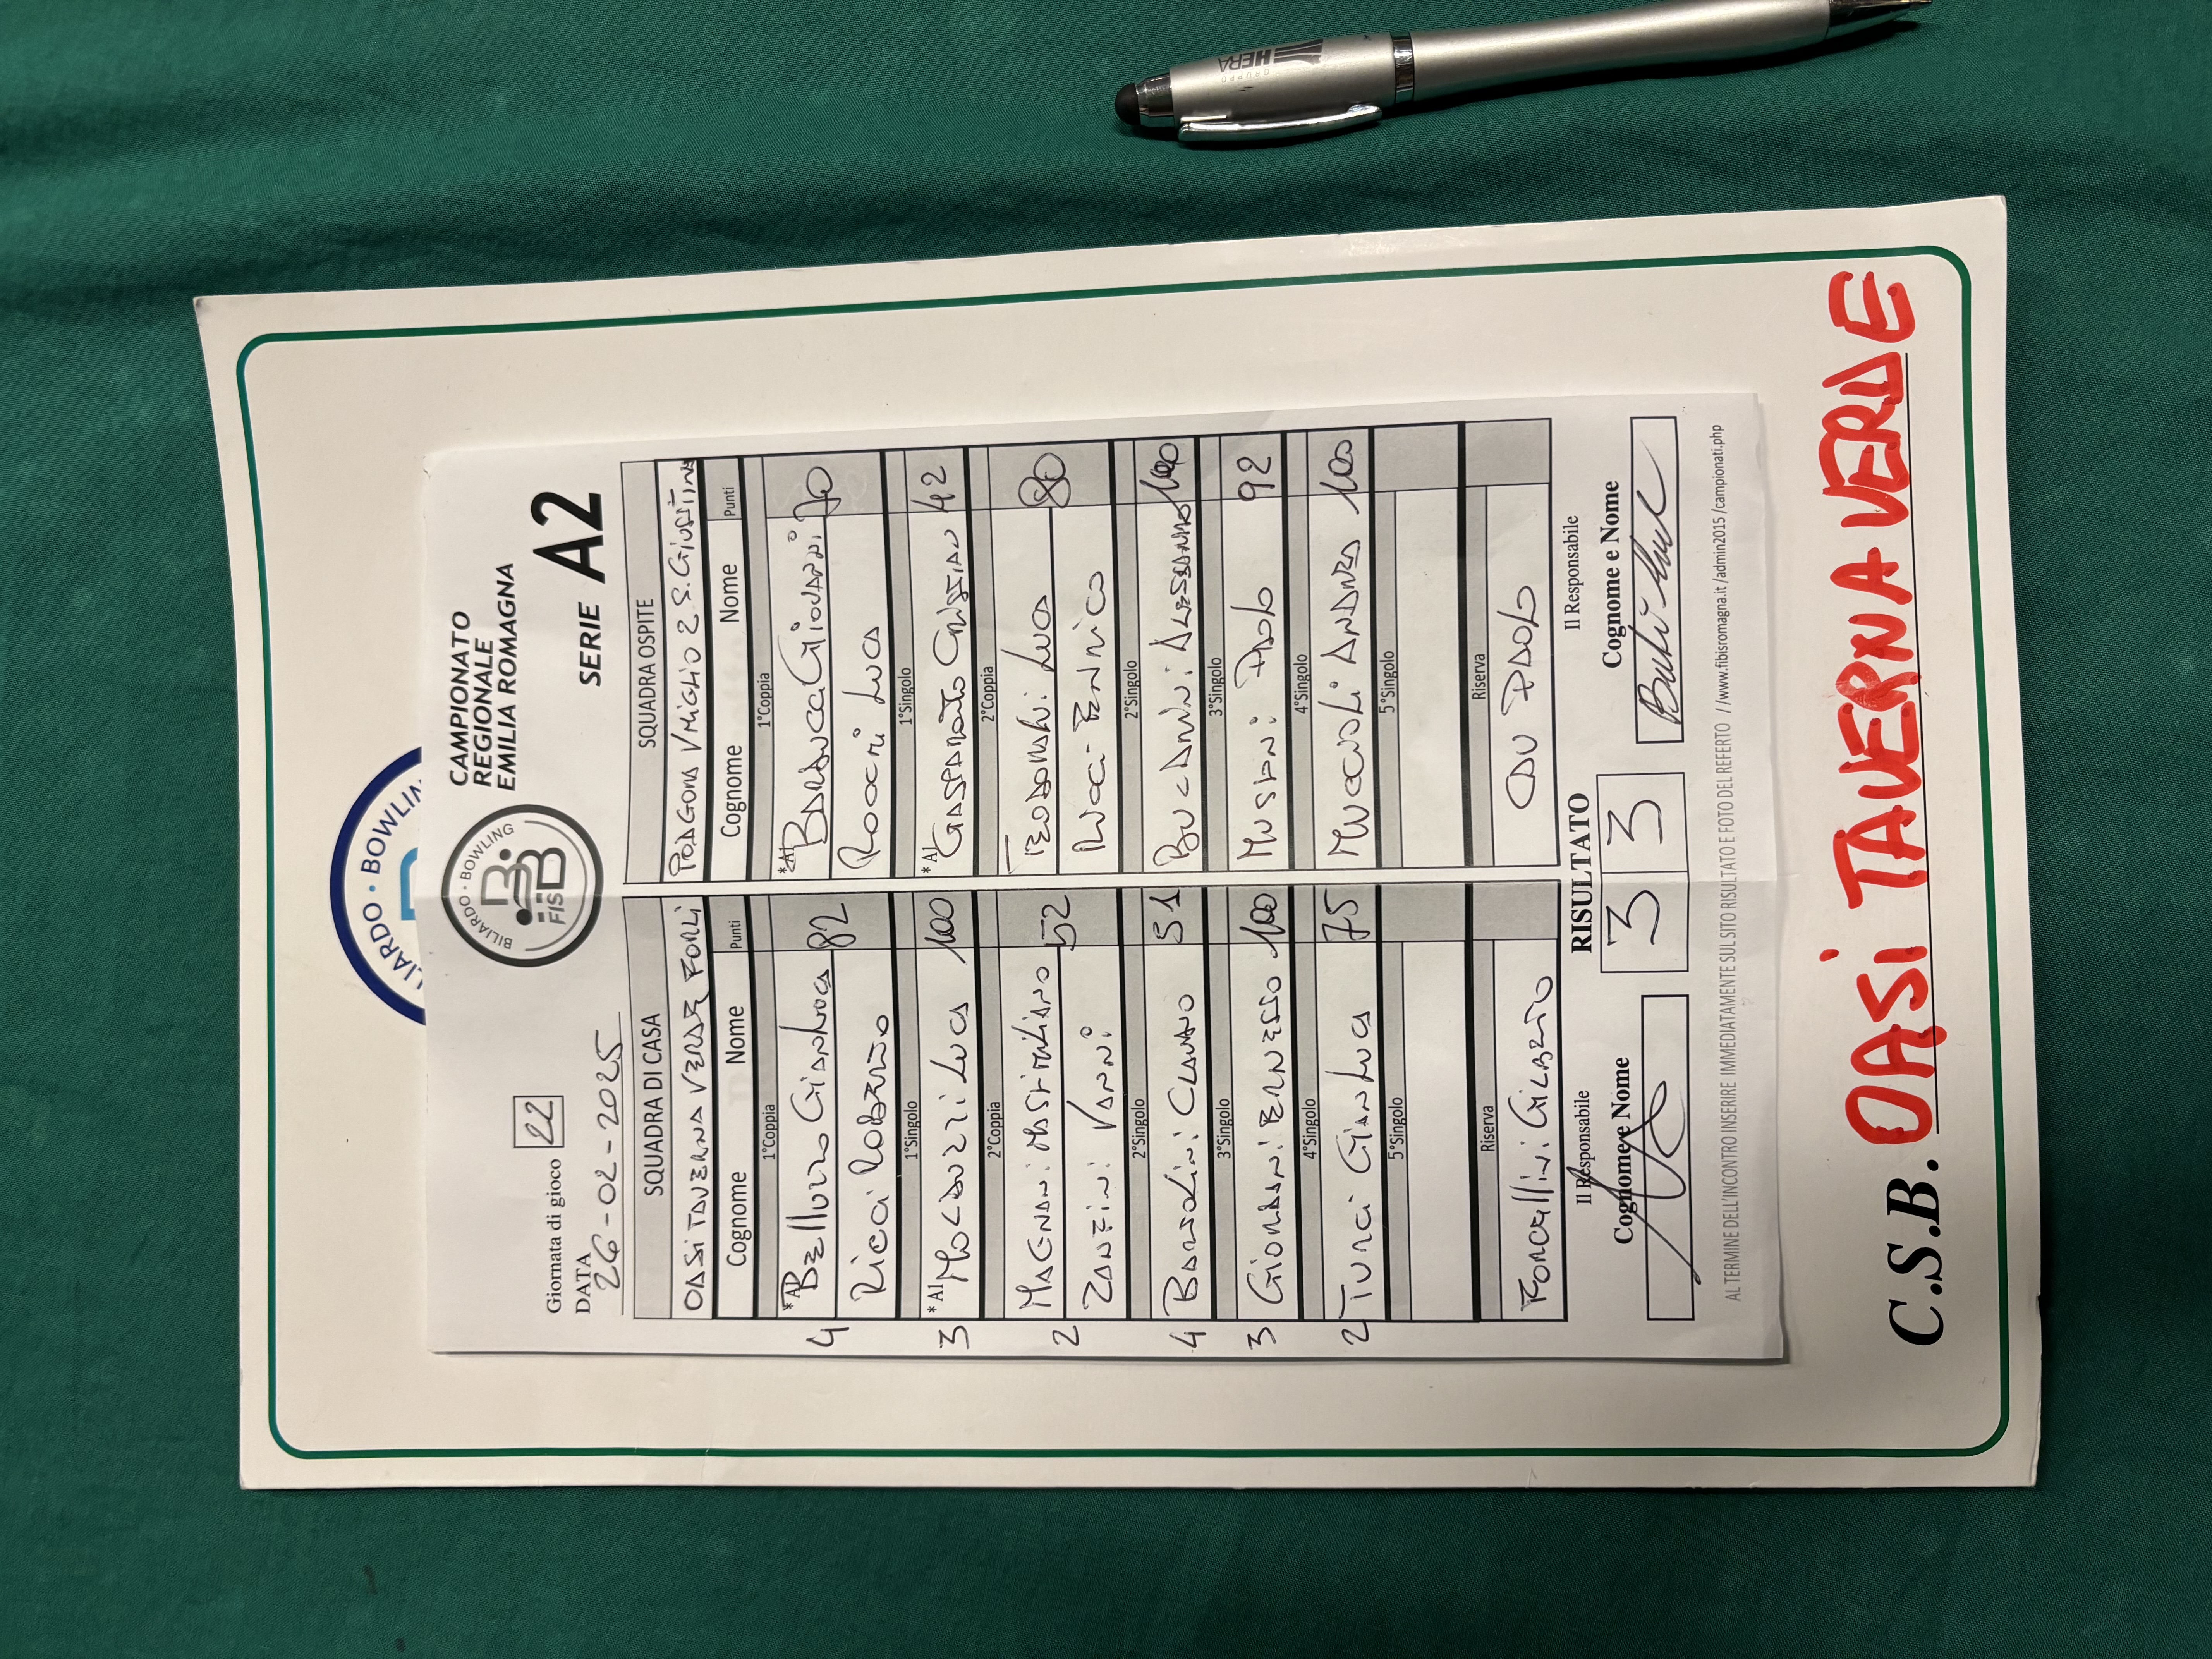 BILIARDO · BOWLING
FISBB
CAMPIONATO
REGIONALE
EMILIA ROMAGNA
Giornata di gioco 22
SERIE A2
DATA
26-02-2025
SQUADRA DI CASA SQUADRA OSPITE
OASI TAVERNA VERDE FORLI S. Giustina
Cognome Nome Punti Cognome Nome Punti
1°Coppia 1°Coppia
4 *A1 Belluzzo Gianluca 82 *A1 Barducca Giovanni 70
Ricci Roberto Roachi Luca
1°Singolo 1°Singolo
3 *A1 Molduzzi Luca 100 *A1 Gasparotto Cristian 42
2°Coppia 2°Coppia
2 MAGNANI MASSIMILIANO 52 TEODORANI Luca 80
ZANFINI VANNI ENRICO
2°Singolo 2°Singolo
4 BARTOLINI CLAUDIO 51 ALESSANDRO 100
3°Singolo 3°Singolo
3 GIORDANI ERNESTO 100 MUSENI PAOLO 92
4°Singolo 4°Singolo
2 TURCI GIANLUCA 75 MUCCIOLI ANDREA 100
5°Singolo 5°Singolo
Riserva Riserva
FORCELLINI GILBERTO PAOLO
Il Responsabile RISULTATO Il Responsabile
Cognome e Nome 3 3 Cognome e Nome
AL TERMINE DELL'INCONTRO INSERIRE IMMEDIATAMENTE SUL SITO RISULTATO E FOTO DEL REFERTO //www.fibisromagna.it/admin2015/campionati.php
C.S.B. OASI TAVERNA VERDE
GRUPPO
HERA